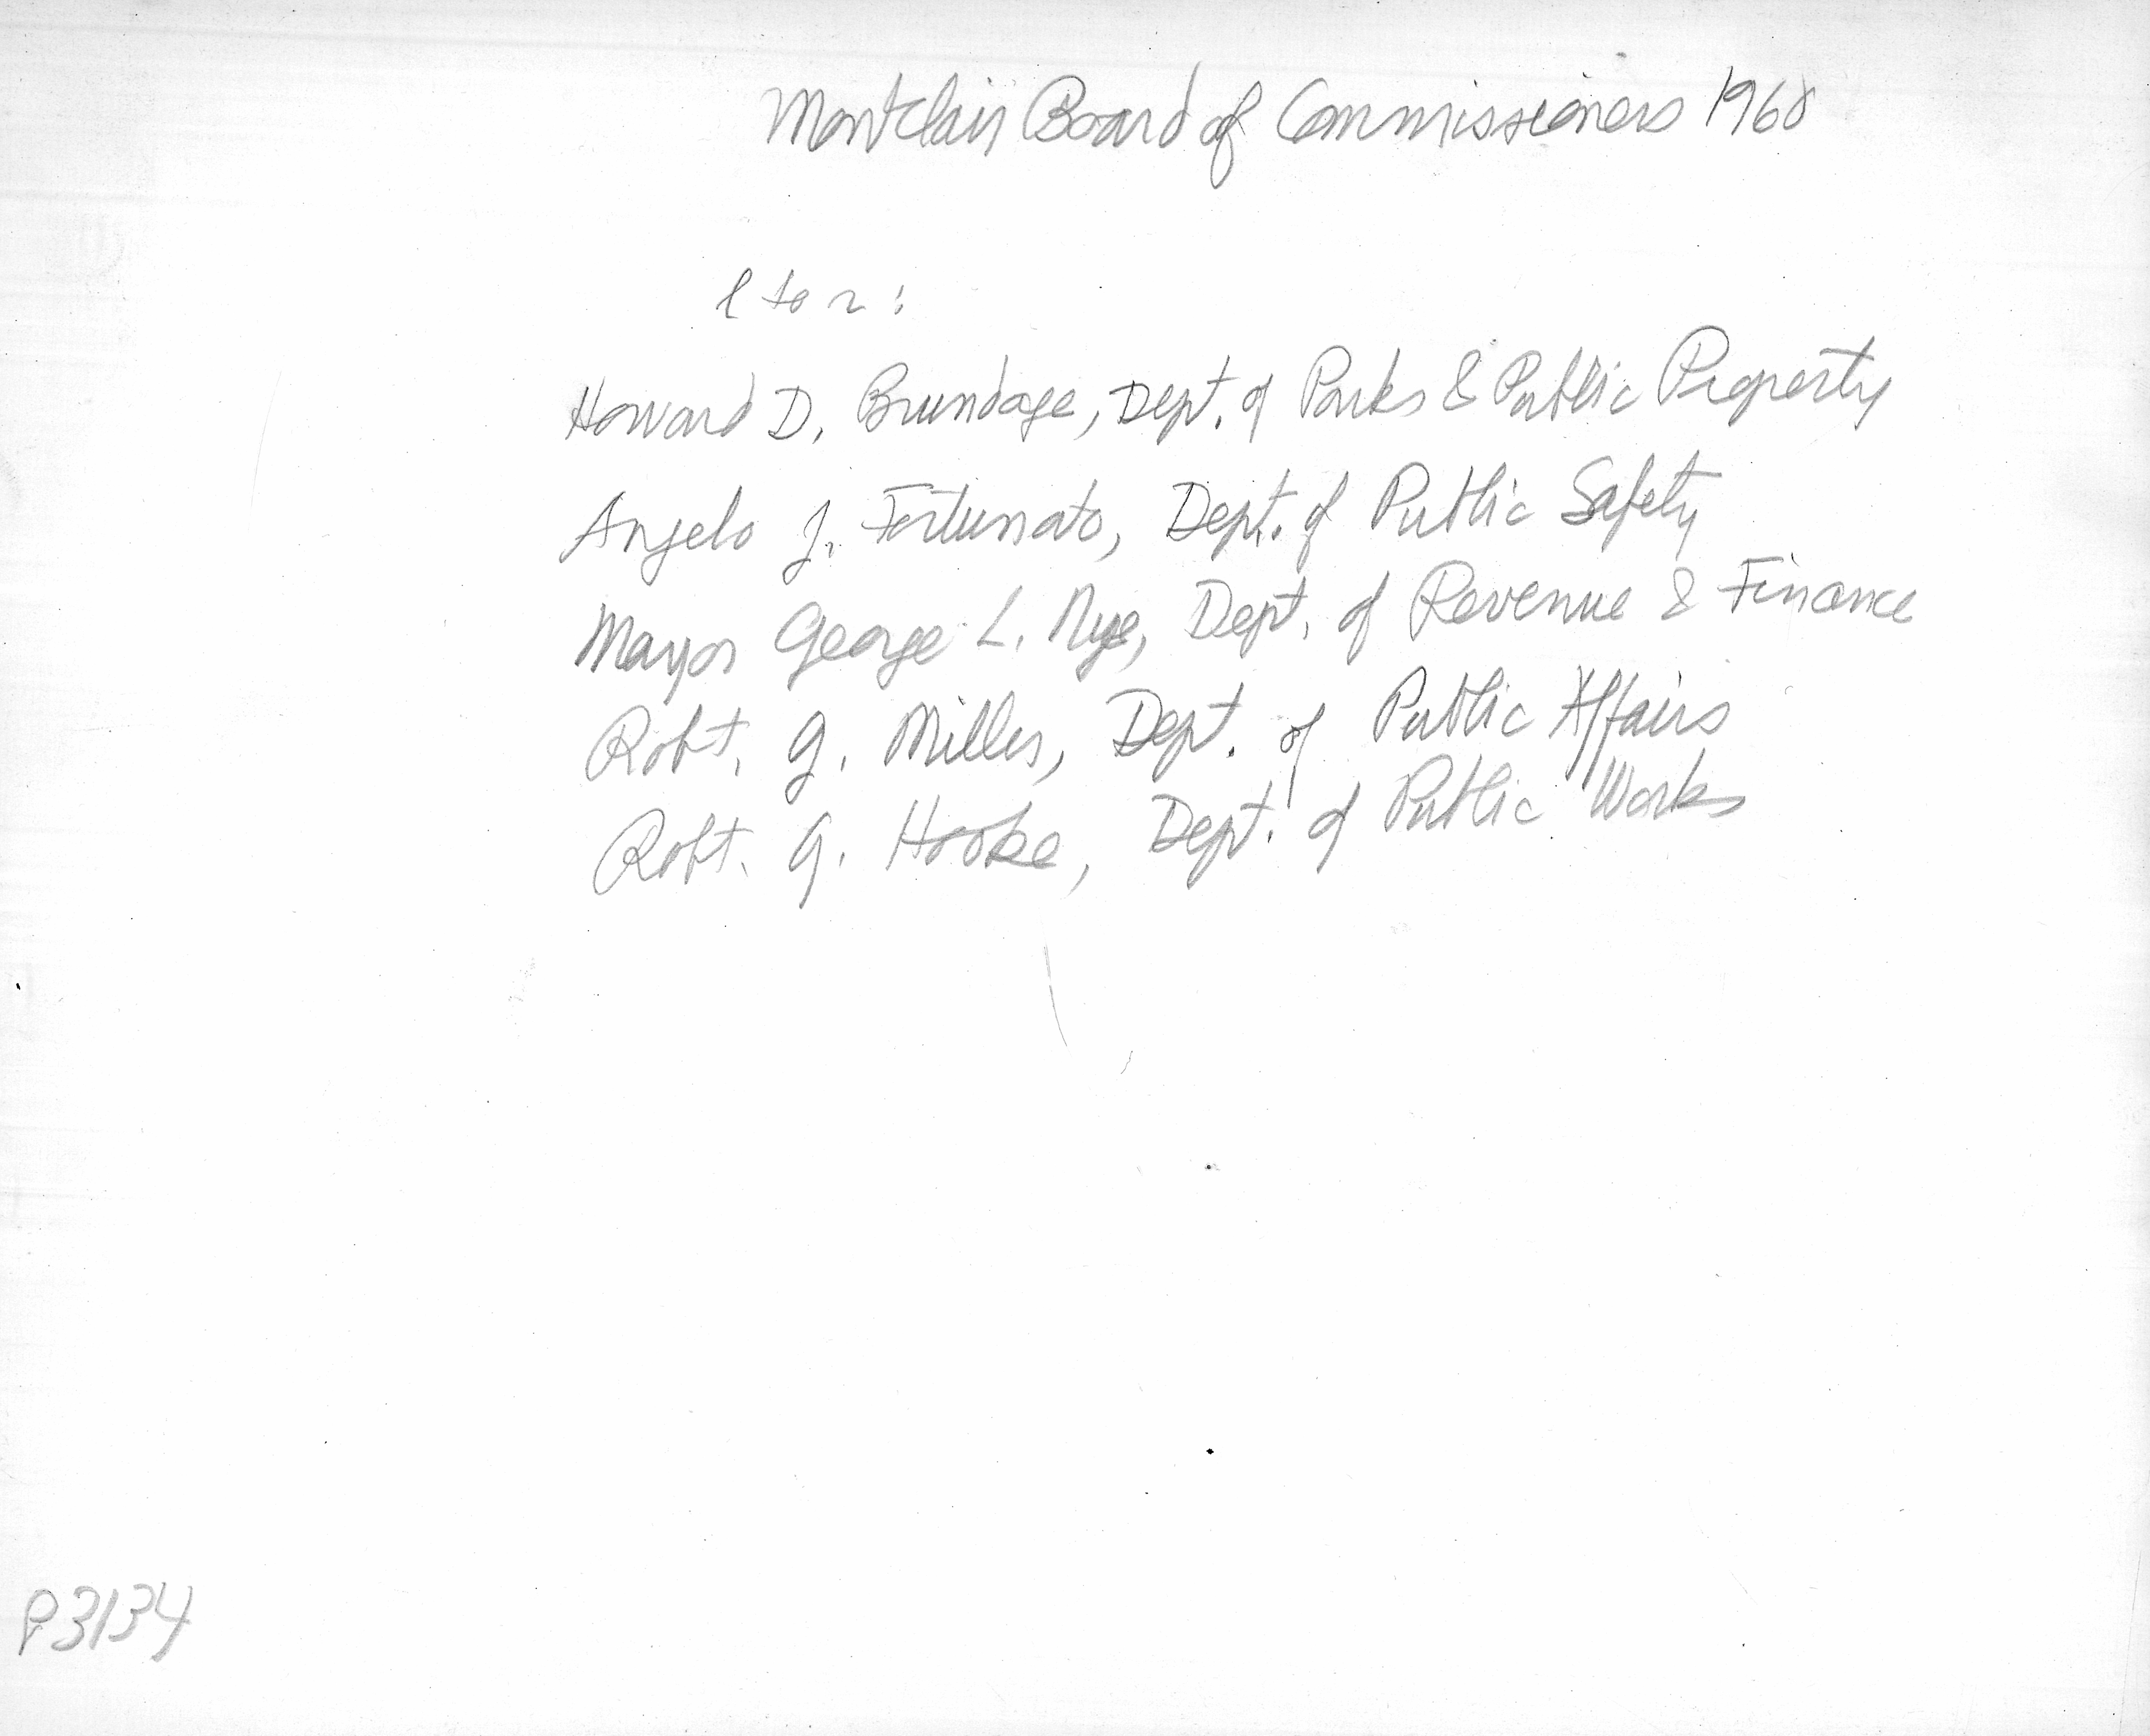 Montclair Board of Commissioners 1968
l to r:
Howard D. Brundage, Dept. of Parks & Public Property
Angelo J. Fortunato, Dept. of Public Safety
Mayor George L. Nye, Dept. of Revenue & Finance
Robt. G. Miller, Dept. of Public Affairs
Robt. G. Hooke, Dept. of Public Works
P3134